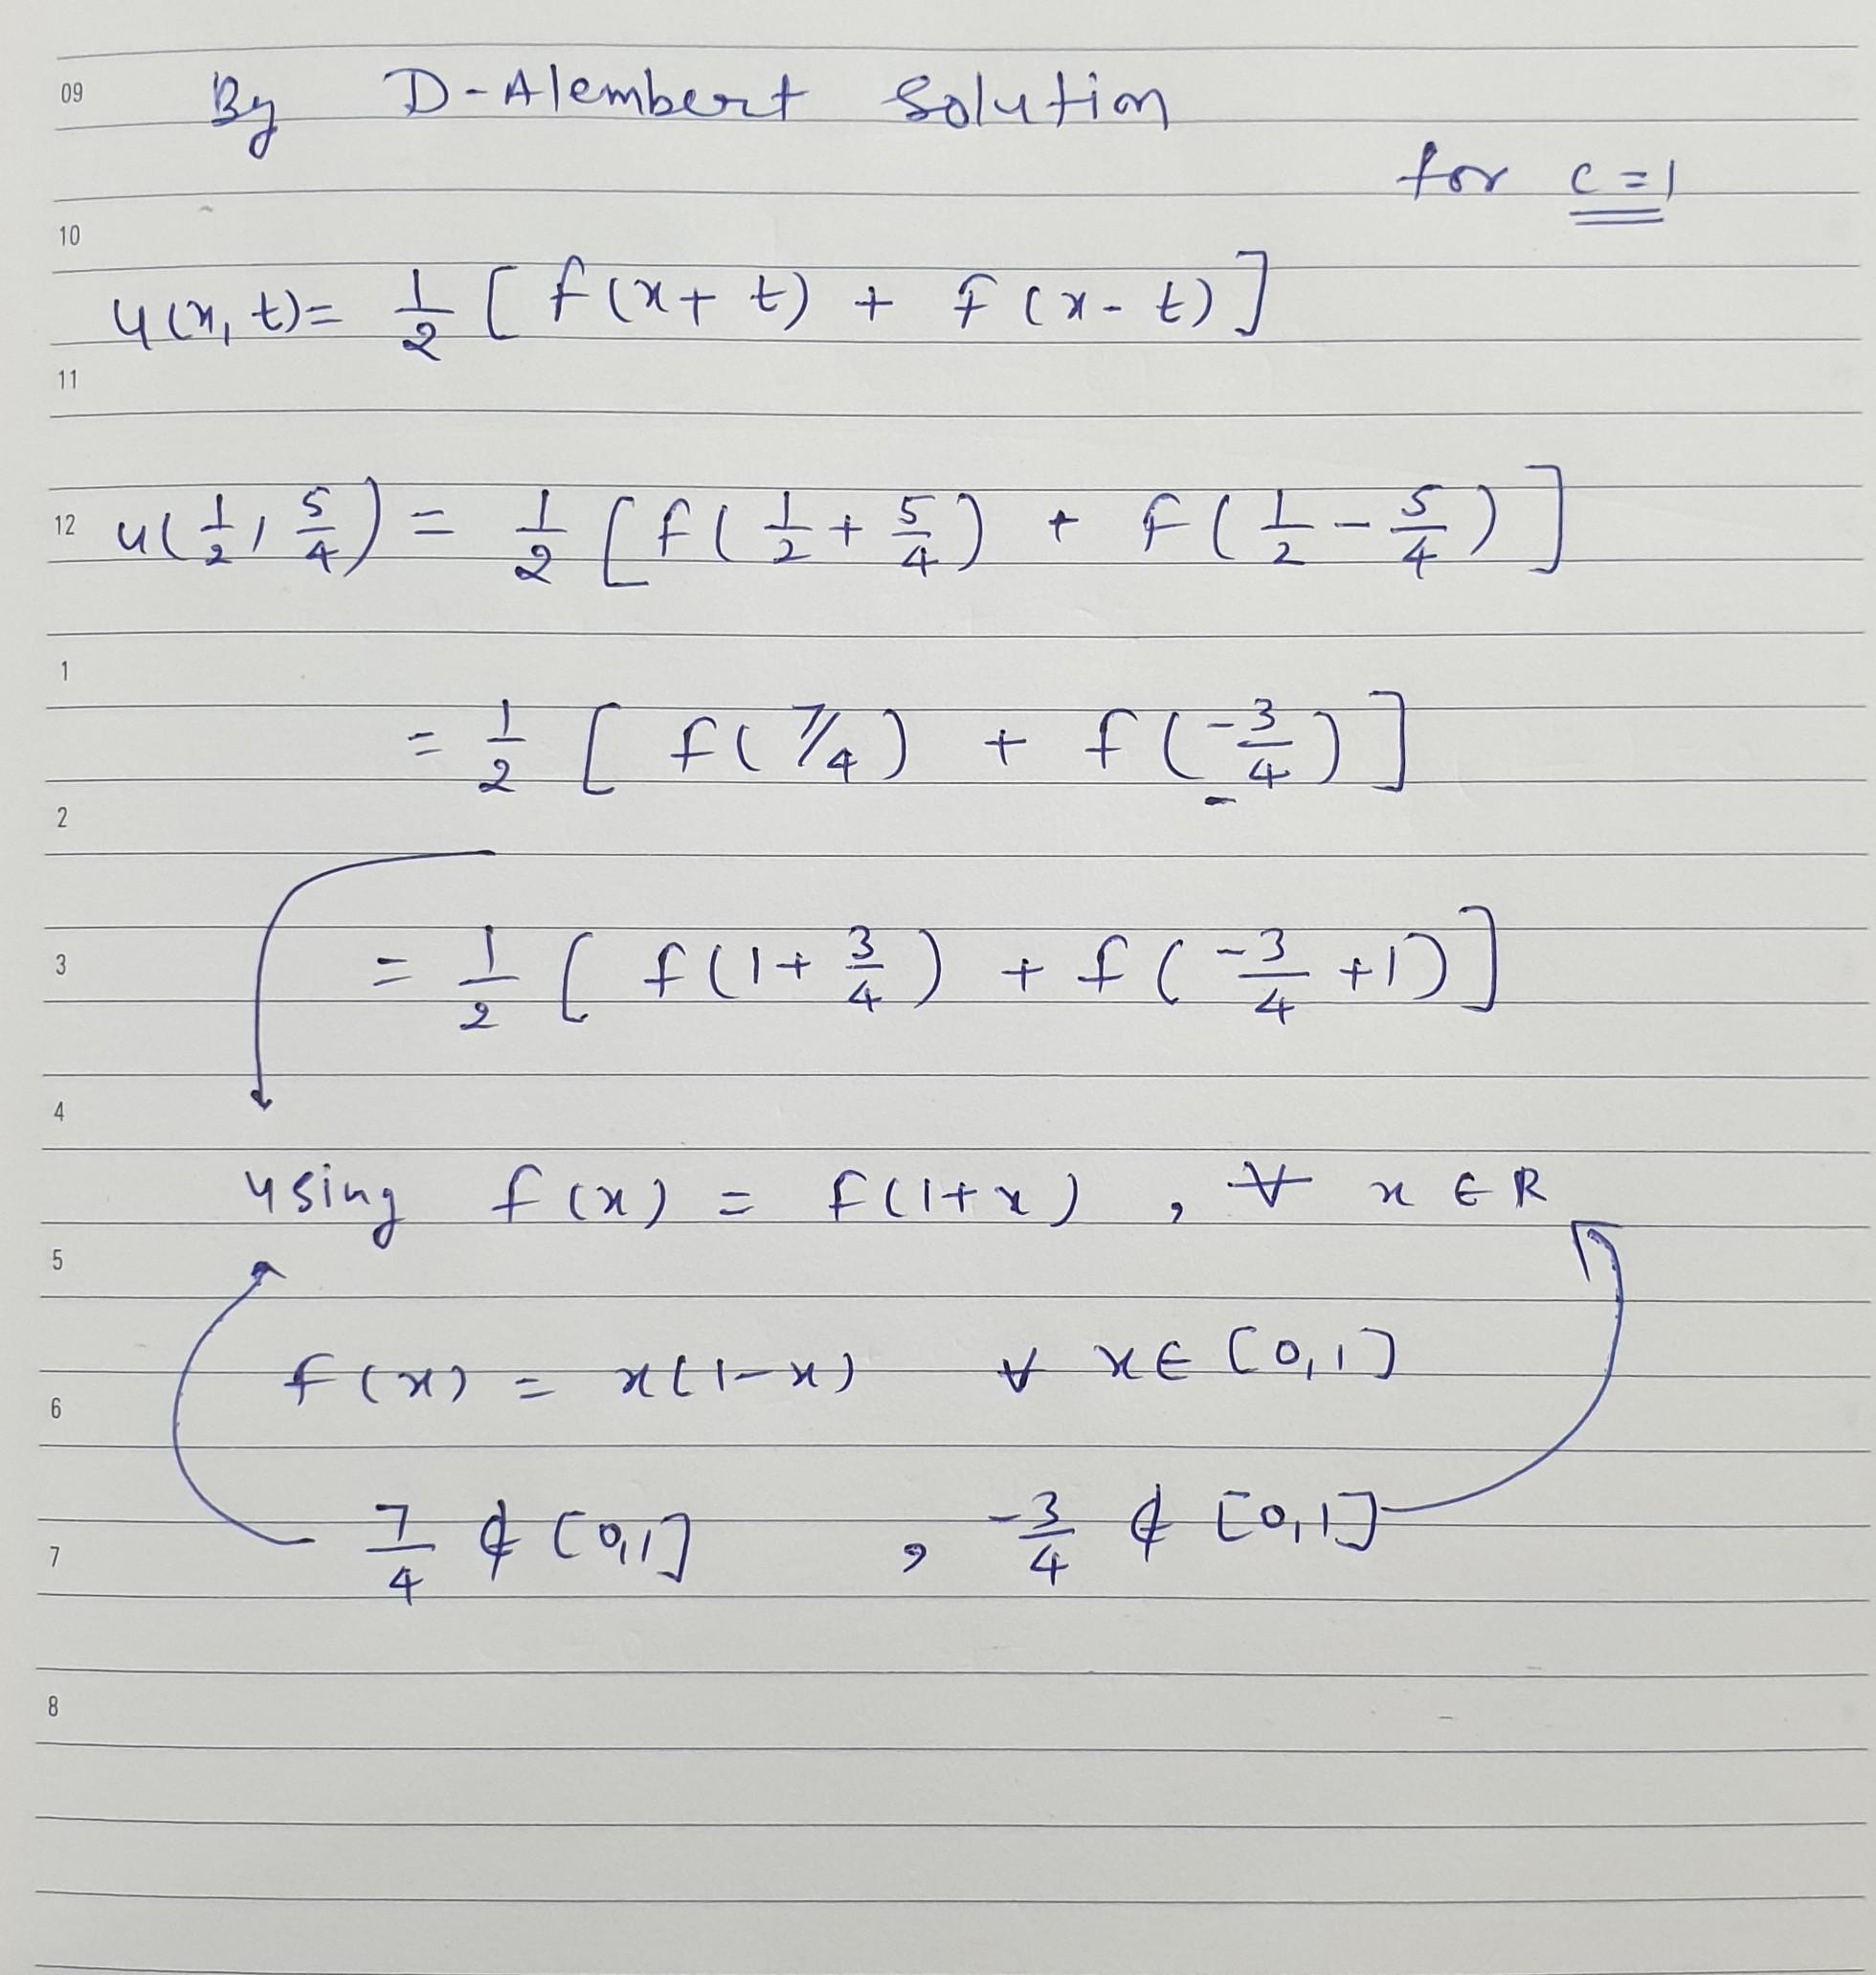 09 By D-Alembert Solution
for c=1
10
u(x, t)= 1/2 [ f(x+ t) + f(x- t)]
11
12 u(1/2, 5/4) = 1/2 [f(1/2 + 5/4) + f(1/2 - 5/4)]
1
= 1/2 [ f(7/4) + f(-3/4)]
2
3 = 1/2 [ f(1+ 3/4) + f(-3/4 +1)]
4
using f(x) = f(1+x) , ∀ x ∈ R
5
f(x) = x(1-x) ∀ x∈ [0,1]
6
7 7/4 ∉ [0,1] , -3/4 ∉ [0,1]
8